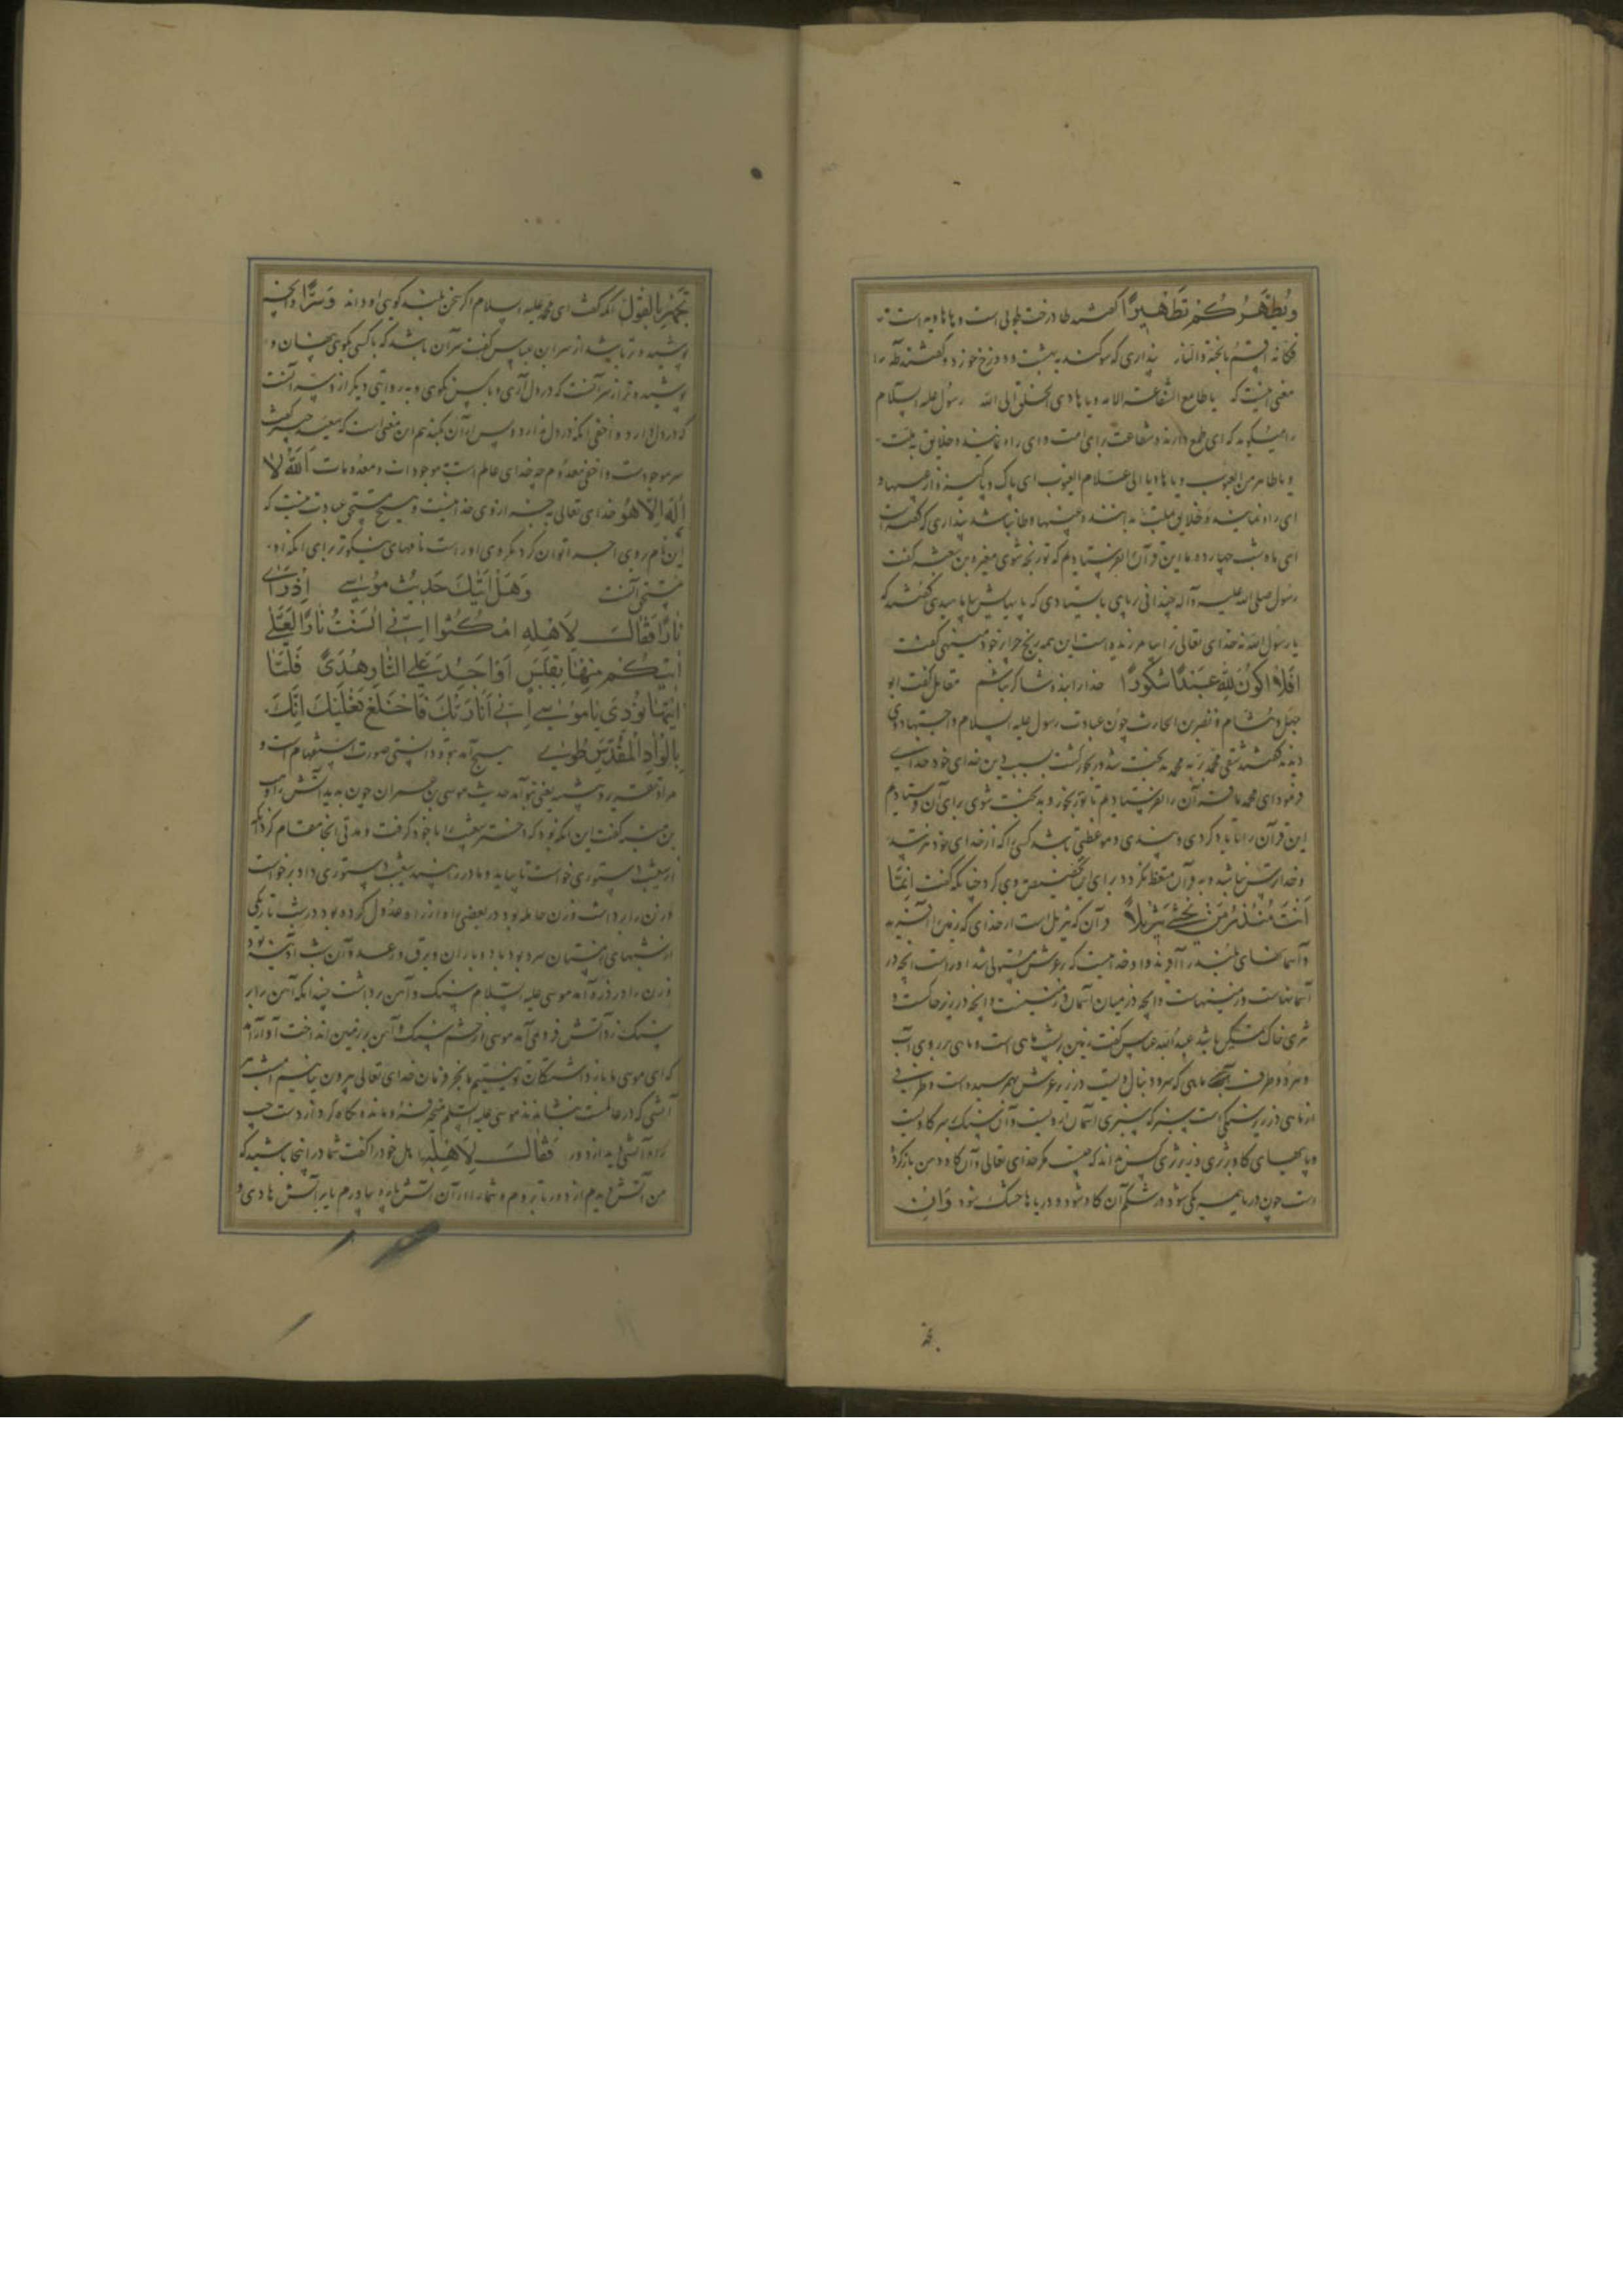 ویطهرکم تطهیرا گفتند طا درخت طوبی است و ها هاویه است
فکانه اقسم بالجنة والنار پنداری که سوگند به بهشت و دوزخ خورد و گفتند طه را
معنی اینست که یا طامع الشفاعة للامة و یا هادی الخلق الی الله رسول علیه السلام
را میگوید که ای طمع دارنده شفاعت برای امت و ای راه نماینده خلایق به ملت
و یا طاهر من العیوب و یا هادیا الی علام الغیوب ای پاک و پاکیزه از عیبها و
ای راه نماینده خلایق ملت
ای ماه شب چهارده ما این قرآن را نفرستادیم که تو رنجه شوی مغیرة بن شعبه گفت
رسول صلی الله علیه و آله چندانی بر پای بایستادی که پایهاش بیاماسیدی گفتند که
یا رسول الله نه خدای تعالی ترا بیامرزیده است این همه رنج چرا بر خود مینهی گفت
افلا اکون لله عبدا شکورا خدا را بنده شاکر نباشم مقاتل گفت ابو
جهل و هشام و نضر بن الحارث چون عبادت رسول علیه السلام و اجتهاد وی
دیدند گفتند شقی محمد بربه محمد بدبخت شد و رنجور گشت بسبب دین خدای خود خدای
فرمود ای محمد ما قرآن را نفرستادیم تا تو رنجور و بدبخت شوی برای آن فرستادیم
این قرآن را تا یاد کردی و پندی و موعظتی باشد کسی را که از خدای خود بترسد
و خدا ترس نباشد و به قرآن متعظ نگردد برای این تخصیص وی کرد چنانکه گفت انما
انت منذر من یخشی تنزیلا قرآن که تنزیل است از خدای که زمین را آفریده
و آسمانهای بلند را آفرید و او خداییست که بر عرش مستولی شد او راست آنچه در
آسمانهاست و زمینهاست و آنچه در میان آسمان و زمینست و آنچه در زیر خاکست و
ثری خاک نمگین باشد عبدالله عباس گفت زمین بر پشت ماهی است و ماهی بر روی آب
و هر دو طرف ماهی که سر و دنبال ویست در زیر عرش بهم رسیده است و طرفی
از ماهی در زیر سنگی است سبز که سبزی آسمان از ویست و آن سنگ بر سر گاویست
و پایهای گاو بر ثری و زیر ثری کس نداند که چیست مگر خدای تعالی و آن گاو دهن باز کرده
است چون دریا همه یکی شود در شکم آن گاو شود و دریاها خشک شود وان
تجهر بالقول آنکه گفت ای محمد علیه السلام اگر سخن بلند گویی او داند و سرا و آنچه
پوشیده تر باشد از سر ابن عباس گفت سر آن باشد که با کسی بگویی پنهان و
پوشیده تر از سر آنست که در دل آری و با کس نگویی و به روایتی دیگر از وی سر آنست
که در دل دارد و اخفی آنکه در دل ندارد و پس از آن بکند هم این معنی است که سعید جبیر گفت
سر موجودست و اخفی معدوم چه خدای عالم است به موجودات و معدومات الله لا
اله الا هو خدای تعالی بجز از وی خدا نیست و هیچ مستحق عبادت نیست که
این نام بر وی اجرا توان کرد مگر وی او راست نامهای نیکوتر برای آنکه او
مستحق آنست وهل اتیک حدیث موسی اذ رای
نارا فقال لاهله امکثوا انی انست نارا لعلی
اتیکم منها بقبس او اجد علی النار هدی فلما
اتیها نودی یا موسی انی انا ربک فاخلع نعلیک انک
بالواد المقدس طوی هیچ آمد بتو و دانستی صورت استفهام است و
مراد تقریر و تنبیه یعنی بتو آمد حدیث موسی بن عمران چون بدید آتش وهب
بن منبه گفت این آنگه بود که دختر شعیب را با خود گرفت و مدتی آنجا مقام کرد آنگه
از شعیب دستوری خواست تا بیاید و مادر را بیند شعیب دستوری داد برخواست
و زن را برداشت و زن حامله بود در بعضی راه از راه عدول کرده بود در شب تاریکی
از شبهای زمستان سرد بود باد و باران و برق و رعد و آن شب آدینه بود
و زن را درد زه آمد موسی علیه السلام سنگ و آهن برداشت چندانکه آهن را بر
سنگ زد آتش فرو نمی آمد موسی از خشم سنگ و آهن بر زمین انداخت آواز آمد
که ای موسی ما بازداشتگان توییم ما بجز فرمان خدای تعالی بیرون نیاییم امشب
آتشی که در عالمست بنشاندند موسی علیه السلم متحیر فرو مانده نگاه کرد از دست چپ
راه آتشی دید از دور فقال لاهله اهل خود را گفت شما در اینجا باشید که
من آتشی دیدم از دور تا بروم و شما را از آن آتش پاره بیاورم یا بر آتش هادی و